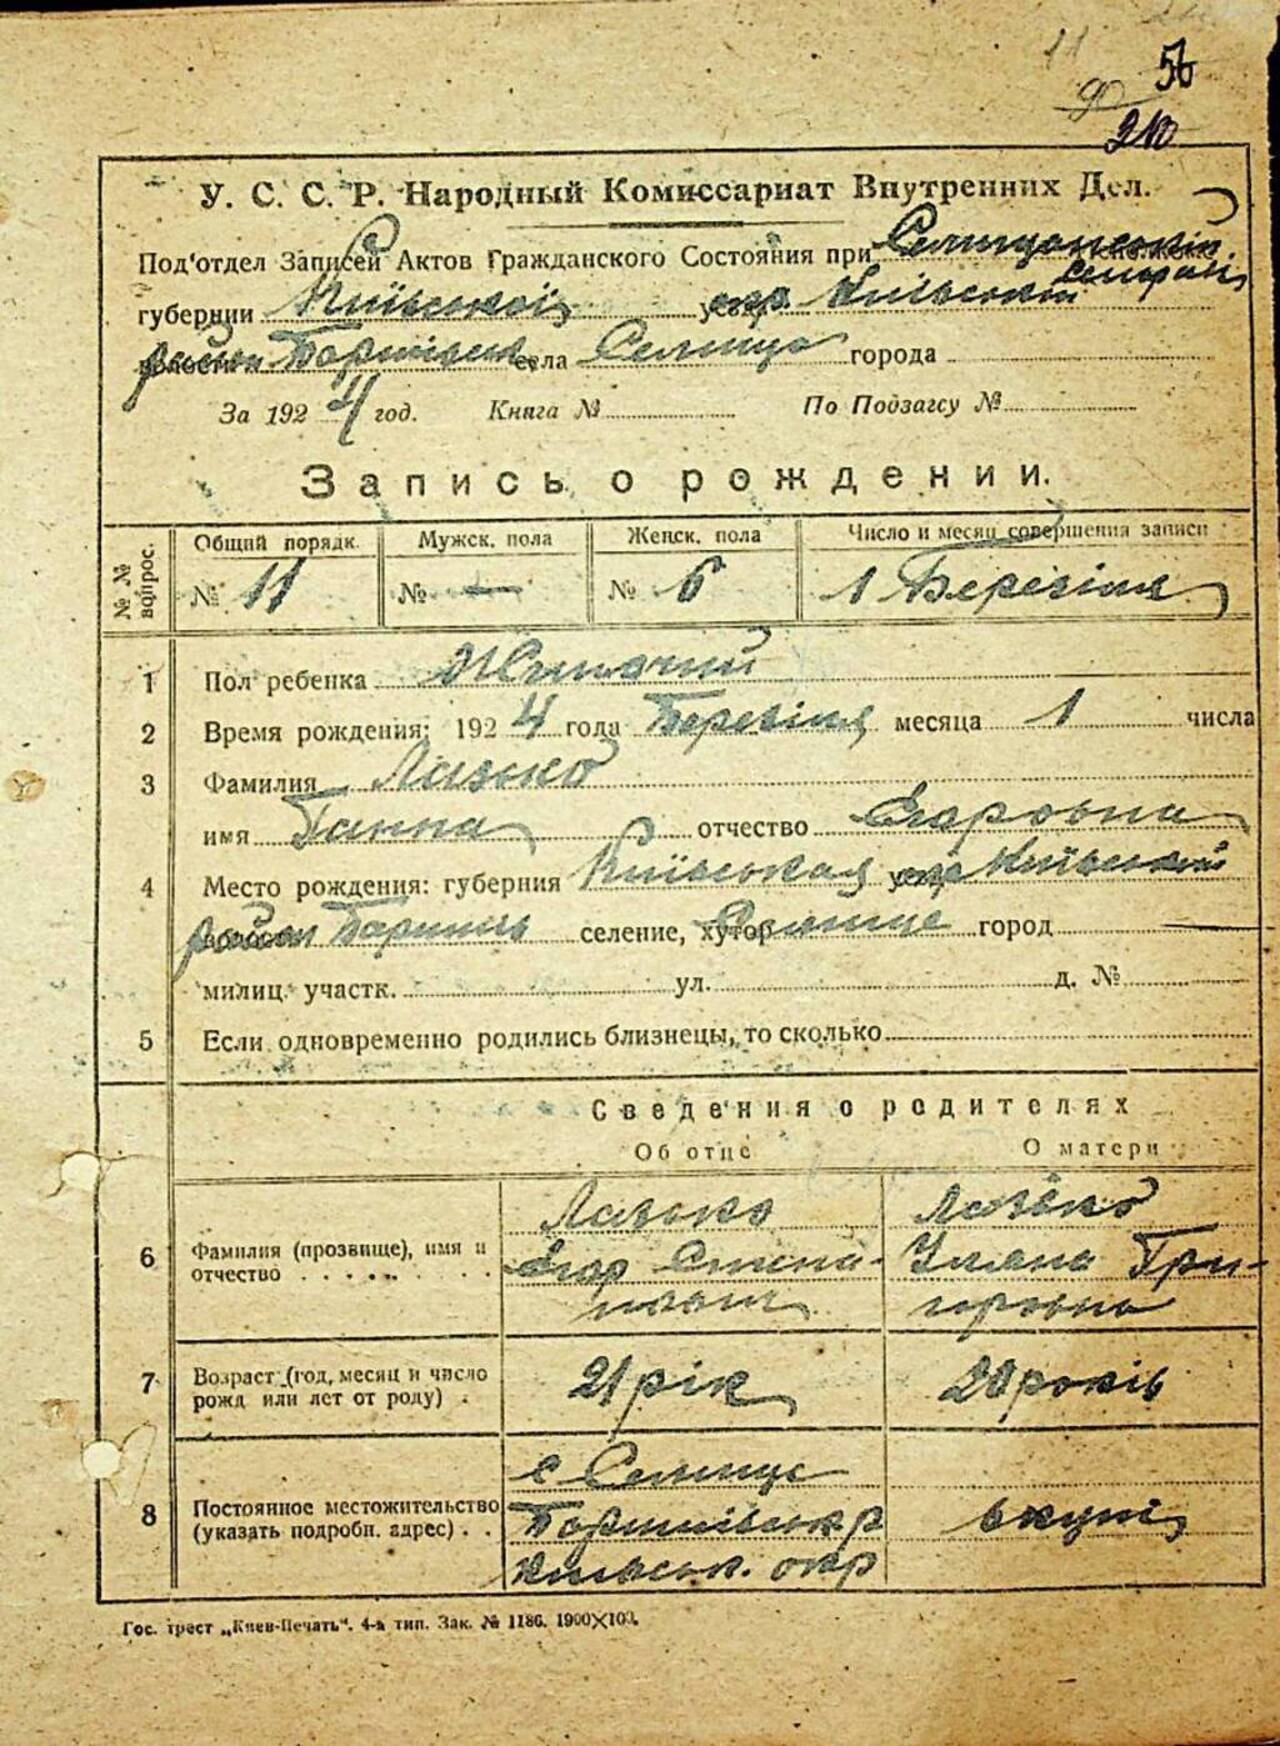 56
90
210
У. С. С. Р. Народный Комиссариат Внутренних Дел.
Под'отдел Записей Актов Гражданского Состояния при Селищанській
Сельраді
губернии Київської окр. Київській
район Баришівськ села Селище города
За 1924 год. Книга № По Подзагсу №
Запись о рождении.
№№ вопрос. Общий порядк. Мужск. пола Женск. пола Число и месяц совершения записи
№ 11 № — № 6 1 Березіля
1 Пол ребенка Жиночий
2 Время рождения: 1924 года Березіля месяца 1 числа
3 Фамилия Лазько
имя Ганна отчество Егоровна
4 Место рождения: губерния Київська окр Київський
район Баришів селение, хутор Селище город —
милиц. участк. ул. д. №
5 Если одновременно родились близнецы, то сколько
Сведения о родителях
Об отце О матери
6 Фамилия (прозвище), имя и отчество Лазько Лазько
Егор Степа- Уляна Гри-
нович горовна
7 Возраст (год, месяц и число рожд или лет от роду) 21 рік 20 років
с Селище
8 Постоянное местожительство (указать подробн. адрес) Баришівськ р вкупі
Київськ. окр
Гос. трест „Киев-Печать“. 4-я тип. Зак. № 1186. 1900×100.